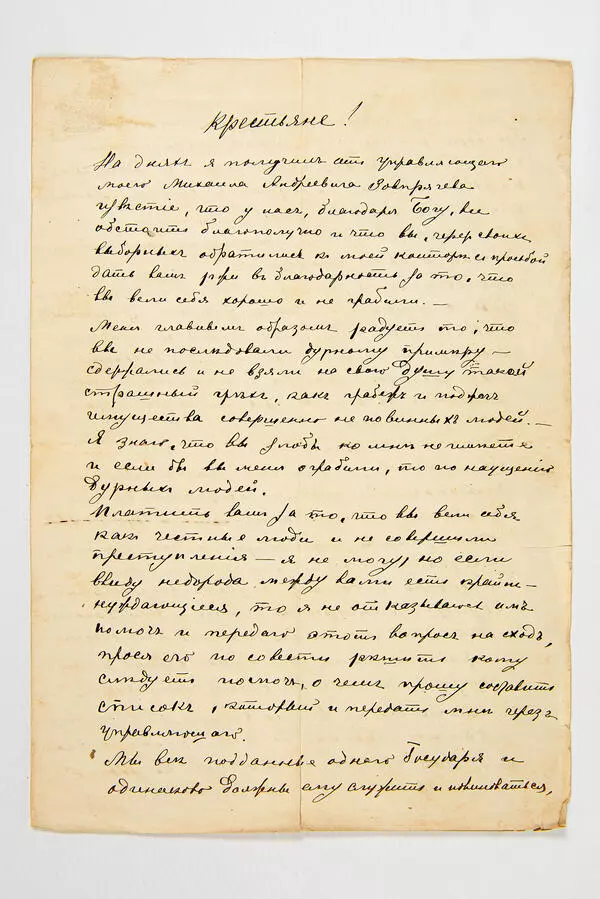 Крестьяне!
На дняхъ я получилъ отъ управляющаго
моего Михаила Андреевича
извѣстіе, что у насъ, благодаря Богу, все
обстоитъ благополучно и что вы, черезъ своихъ
выборныхъ обратились къ моей конторѣ съ просьбой
дать вамъ ржи въ благодарность за то, что
вы вели себя хорошо и не грабили. —
Меня главнымъ образомъ радуетъ то, что
вы не послѣдовали дурному примѣру —
сдержались и не взяли на свою душу такой
страшный грѣхъ, какъ грабежъ и поджогъ
имущества совершенно не повинныхъ людей. —
Я знаю, что вы злобы ко мнѣ не имѣете
и если бы вы меня ограбили, то по наущенію
дурныхъ людей.
Платить вамъ за то, что вы вели себя
какъ честные люди и не совершили
преступленія — я не могу, но если
ввиду недорода между вами есть крайне
нуждающіеся, то я не отказываюсь имъ
помочь и передаю этотъ вопросъ на сходъ,
прося его по совести рѣшить кому
слѣдуетъ помочь, о чемъ прошу составить
списокъ, который и передать мнѣ черезъ
управляющаго.
Мы всѣ подданные одного Государя и
одинаково должны ему служить и повиноваться,